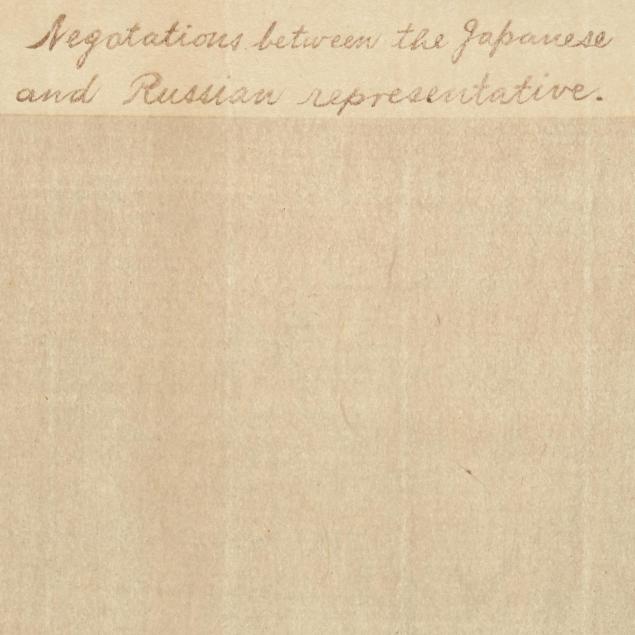 Negotations between the Japanese
and Russian representative.